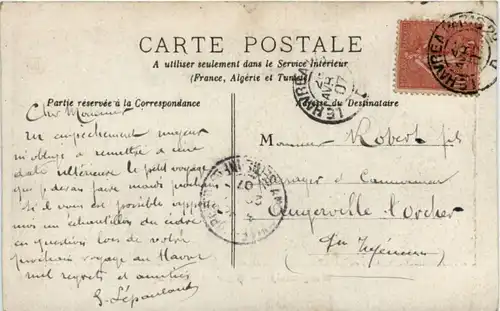 CARTE POSTALE
A utiliser seulement dans le Service Intérieur
(France, Algérie et Tunisie)
Partie réservée à la Correspondance
Adresse du Destinataire
Cher Monsieur
un empêchement majeur
m'oblige à remettre à une
date ultérieure le petit voyage
que je devais faire mardi prochain
si il vous est possible
moi un échantillon du cidre
en question lors de votre
prochain voyage au Havre
mil regrets et amitiés
Monsieur Robert fils
Angerville l'Orcher
Seine Inférieure
LE HAVRE A
07
LE HAVRE A
07